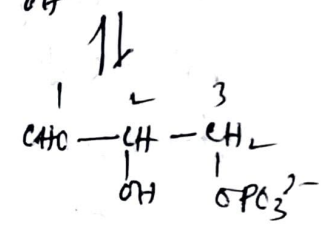 OH
1 2 3
CHO — CH — CH₂
OH OPO₃²⁻